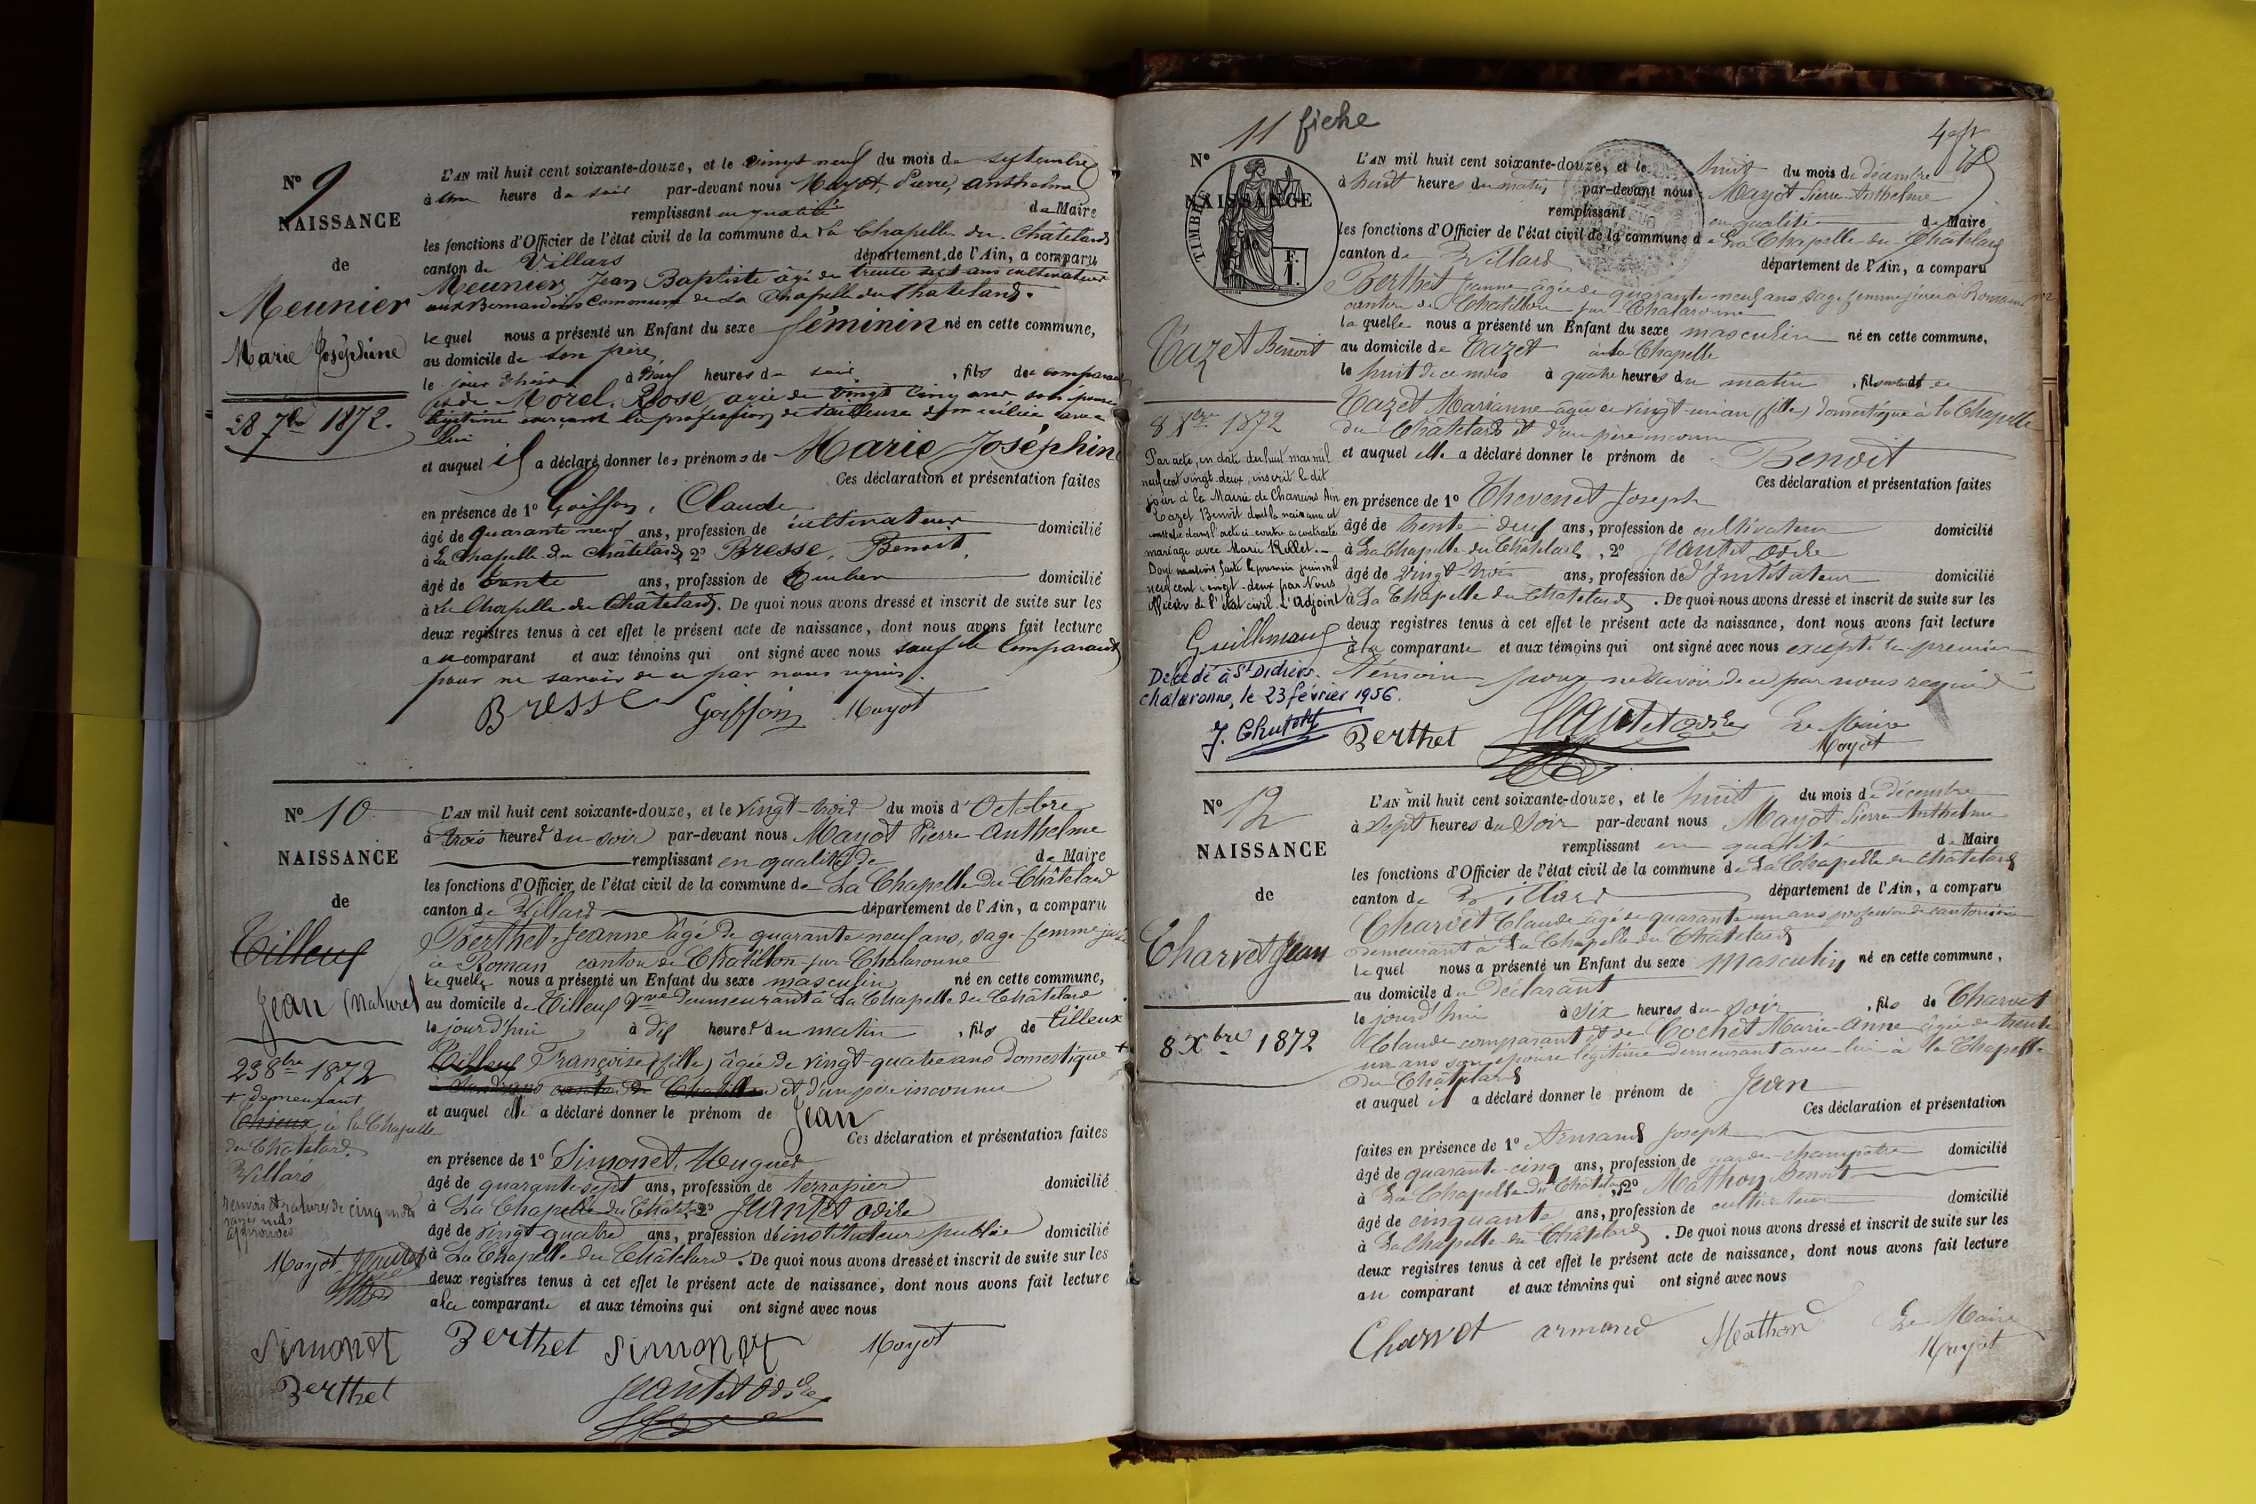 N° 9
NAISSANCE
de
Meunier
Marie Joséphine
28 7bre 1872.
L'AN mil huit cent soixante-douze, et le vingt neuf du mois de septembre
à une heure du soir par-devant nous Mayot, Pierre, anthelme
remplissant en qualité de Maire
les fonctions d'Officier de l'état civil de la commune de La Chapelle du Châtelard
canton de Villars département de l'Ain, a comparu
Meunier, Jean Baptiste âgé de trente six ans cultivateur
aux Bernardins Commune de La Chapelle du Chatelard.
le quel nous a présenté un Enfant du sexe féminin né en cette commune,
au domicile de son père,
le jour d'hier à neuf heures du soir, fils de comparant
et de Morel, Rose, agée de vingt cinq ans son épouse
légitime exerçant la profession de tailleuse domiciliée avec
lui
et auquel il a déclaré donner les prénoms de Marie Joséphine
Ces déclaration et présentation faites
en présence de 1° Goiffon, Claude
âgé de quarante neuf ans, profession de cultivateur domicilié
à La Chapelle du Châtelard, 2° Bresse, Benoit,
âgé de trente ans, profession de domicilié
à La Chapelle du Châtelard. De quoi nous avons dressé et inscrit de suite sur les
deux registres tenus à cet effet le présent acte de naissance, dont nous avons fait lecture
au comparant et aux témoins qui ont signé avec nous sauf le Comparant
pour ne savoir de ce par nous requis.
Bresse Goiffon Mayot
N° 10
NAISSANCE
de
Tilleuf
Jean (naturel
23 8bre 1872
+ demeurant
à la Chapelle
du Châtelard.
Villars
Renvois et ratures de cinq mots
rayés nuls
approuvés
Mayot Jeantet
Simonet
Berthet
L'AN mil huit cent soixante-douze, et le vingt-trois du mois d'Octobre
à trois heures du soir par-devant nous Mayot Pierre-Anthelme
remplissant en qualité de de Maire
les fonctions d'Officier de l'état civil de la commune de La Chapelle du Châtelard
canton de Villars département de l'Ain, a comparu
Berthet, Jeanne âgé de quarante-neuf ans, sage-femme jurée
à Roman canton de Chatillon-sur-Chalaronne
le quelle nous a présenté un Enfant du sexe masculin né en cette commune,
au domicile de Tilleuf Vve demeurant à La Chapelle du Châtelard
le jourd'hui, à dix heures du matin, fils de Tilleux
Tilleuf Françoise (fille) âgée de vingt-quatre ans domestique +
canton de Chatillon et d'un père inconnu
et auquel elle a déclaré donner le prénom de Jean
Ces déclaration et présentation faites
en présence de 1° Simonet, Hugues
âgé de quarante sept ans, profession de terrapier domicilié
à La Chapelle du Châtel. 2° Jeantet Odile
âgé de vingt quatre ans, profession d'instituteur public domicilié
à La Chapelle du Châtelard. De quoi nous avons dressé et inscrit de suite sur les
deux registres tenus à cet effet le présent acte de naissance, dont nous avons fait lecture
a la comparante et aux témoins qui ont signé avec nous
Berthet Simonet Mayot
Jeantet Odile
11 fiche
N°
NAISSANCE
TIMBRE
F.
1.
Cazet Benoit
8 Xbre 1872
Par acte, en date du huit mai mil
neuf cent vingt-deux, inscrit le dit
jour à la Mairie de Chaneins Ain
Cazet Benoit dont la naissance est
constatée dans l'acte ci-contre a contracté
mariage avec Marie Rollet.
Dont mention faite le premier juin mil
neuf cent vingt-deux par Nous
officier de l'état civil. L'adjoint
Guillemaud
Décédé à St Didier s.
Chalaronne, le 23 février 1956.
L'AN mil huit cent soixante-douze, et le huit du mois de décembre
à huit heures du matin, par-devant nous Mayot Pierre-Anthelme
remplissant en qualité de Maire
les fonctions d'Officier de l'état civil de la commune de La Chapelle du Châtelard
canton de Villars département de l'Ain, a comparu
Berthet Jeanne âgée de quarante-neuf ans, sage-femme jurée à Romans
canton de Chatillon sur Chalaronne
la quelle nous a présenté un Enfant du sexe masculin né en cette commune,
au domicile de Cazet à La Chapelle
le huit de ce mois à quatre heures du matin, fils naturel de
Cazet Marianne âgée de vingt-un an (fille) domestique à la Chapelle
du Châtelard et d'un père inconnu
et auquel elle a déclaré donner le prénom de Benoit
Ces déclaration et présentation faites
en présence de 1° Thevenet Joseph
âgé de trente-deux ans, profession de cultivateur domicilié
à La Chapelle du Châtelard, 2° Jeantet Odile
âgé de vingt-trois ans, profession d'Instituteur domicilié
à La Chapelle du Châtelard. De quoi nous avons dressé et inscrit de suite sur les
deux registres tenus à cet effet le présent acte de naissance, dont nous avons fait lecture
à la comparante et aux témoins qui ont signé avec nous excepté le premier
témoin pour ne savoir de ce par nous requis
Berthet Jeantet Odile Le Maire
Mayot
N° 12
NAISSANCE
de
Charvet Jean
8 Xbre 1872
L'AN mil huit cent soixante-douze, et le huit du mois de décembre
à sept heures du soir par-devant nous Mayot Pierre-Anthelme
remplissant en qualité de Maire
les fonctions d'Officier de l'état civil de la commune de La Chapelle du Châtelard
canton de Villars département de l'Ain, a comparu
Charvet Claude âgé de quarante-un ans profession de cantonnier
demeurant à La Chapelle du Châtelard
le quel nous a présenté un Enfant du sexe masculin né en cette commune,
au domicile du Déclarant
le jourd'hui à six heures du soir, fils de Charvet
Claude comparant et de Cochet Marie-Anne âgée de trente
un ans son épouse légitime demeurant avec lui à la Chapelle
du Châtelard
et auquel il a déclaré donner le prénom de Jean
Ces déclaration et présentation
faites en présence de 1° Armand Joseph
âgé de quarante-cinq ans, profession de garde-champêtre domicilié
à La Chapelle du Châtelard, 2° Mathon Benoit
âgé de cinquante ans, profession de cultivateur domicilié
à La Chapelle du Châtelard. De quoi nous avons dressé et inscrit de suite sur les
deux registres tenus à cet effet le présent acte de naissance, dont nous avons fait lecture
au comparant et aux témoins qui ont signé avec nous
Charvet armand Mathon Le Maire
Mayot